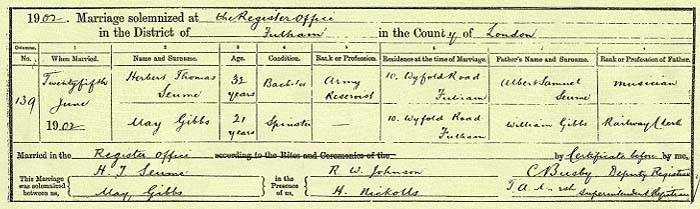 1902. Marriage solemnized at the Register Office
in the District of Fulham in the County of London
Columns. 1 2 3 4 5 6 7 8
No. When Married. Name and Surname. Age. Condition. Rank or Profession. Residence at the time of Marriage. Father's Name and Surname. Rank or Profession of Father.
139 Twenty fifth June 1902 Herbert Thomas Seume 32 years Bachelor Army Reservist 10. Wyfold Road Fulham Albert Samuel Seume Musician
May Gibbs 21 years Spinster — 10. Wyfold Road Fulham William Gibbs Railway Clerk
Married in the Register Office according to the Rites and Ceremonies of the by Certificate before by me,
This Marriage was solemnized between us, H. T. Seume May Gibbs in the Presence of us, R. W. Johnson H. Nicholls
C Busby Deputy Registrar
Superintendent Registrar